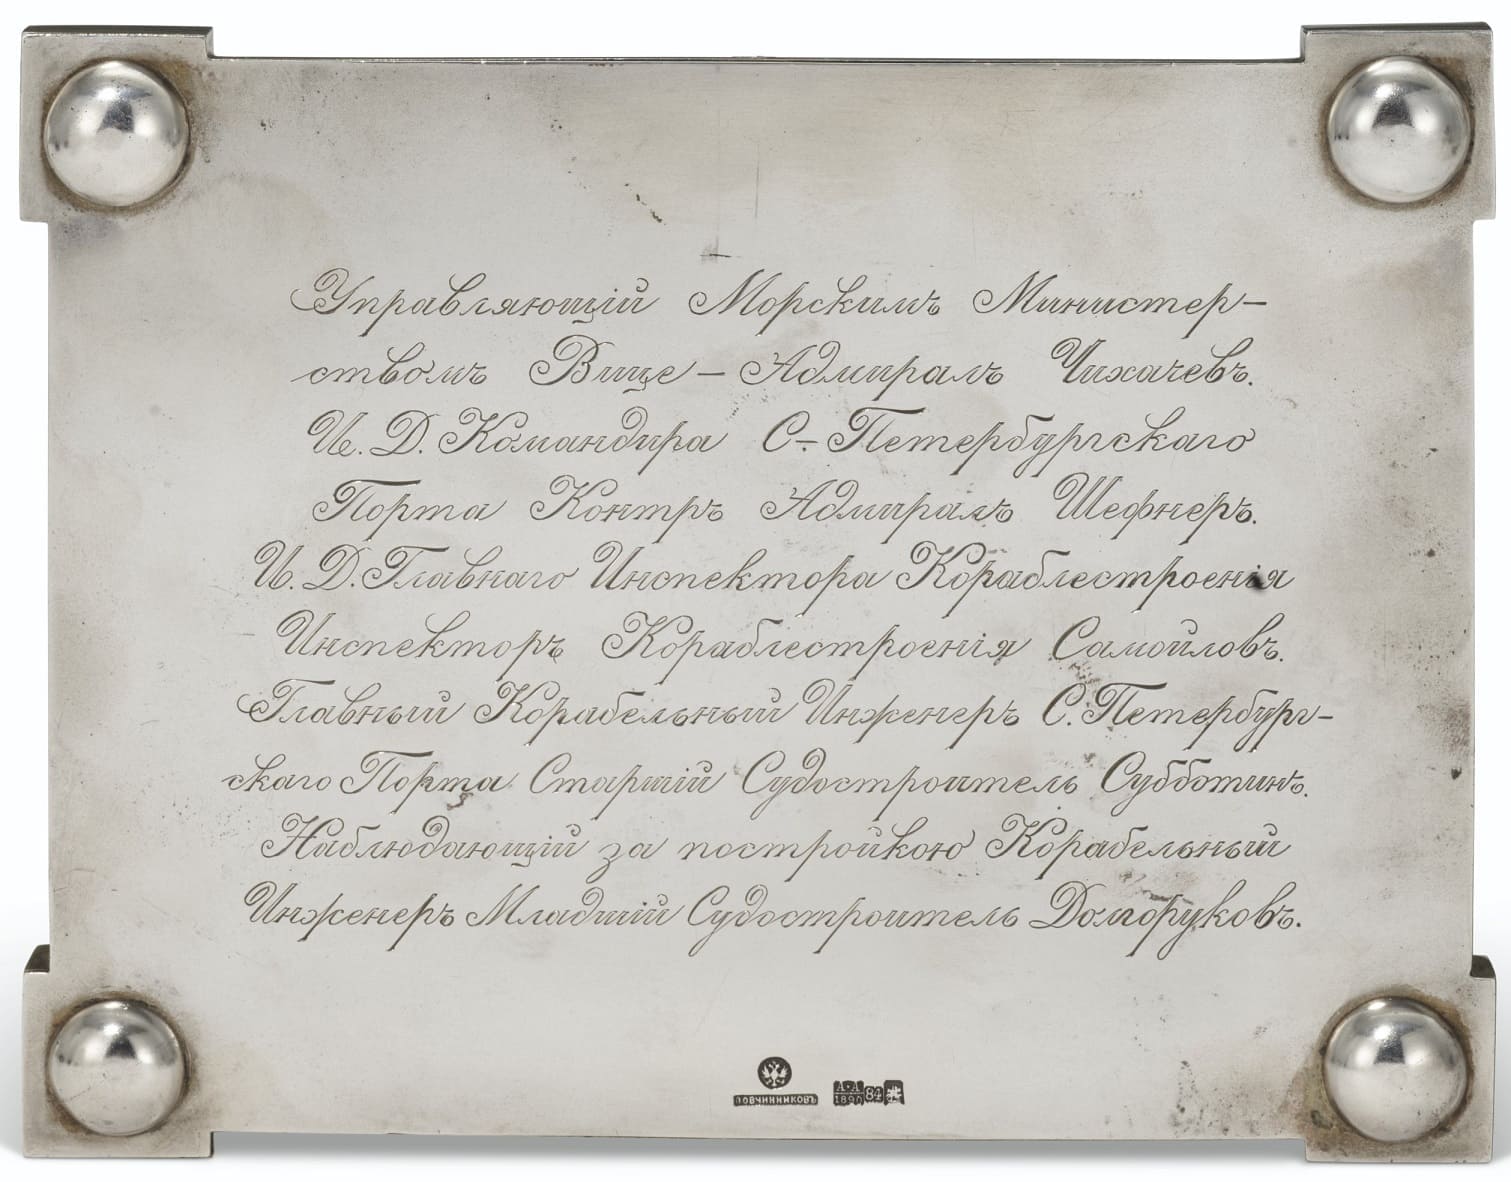 Управляющій Морскимъ Министер-
ствомъ Вице-Адмиралъ Чихачевъ.
И. Д. Командира С-Петербургскаго
Порта Контръ Адмиралъ Шефнеръ.
И. Д. Главнаго Инспектора Кораблестроенія
Инспекторъ Кораблестроенія Самойловъ.
Главный Корабельный Инженеръ С. Петербург-
скаго Порта Старшій Судостроитель Субботинъ.
Наблюдающій за постройкою Корабельный
Инженеръ Младшій Судостроитель Долгоруковъ.
П.ОВЧИННИКОВЪ А·А 1890 84